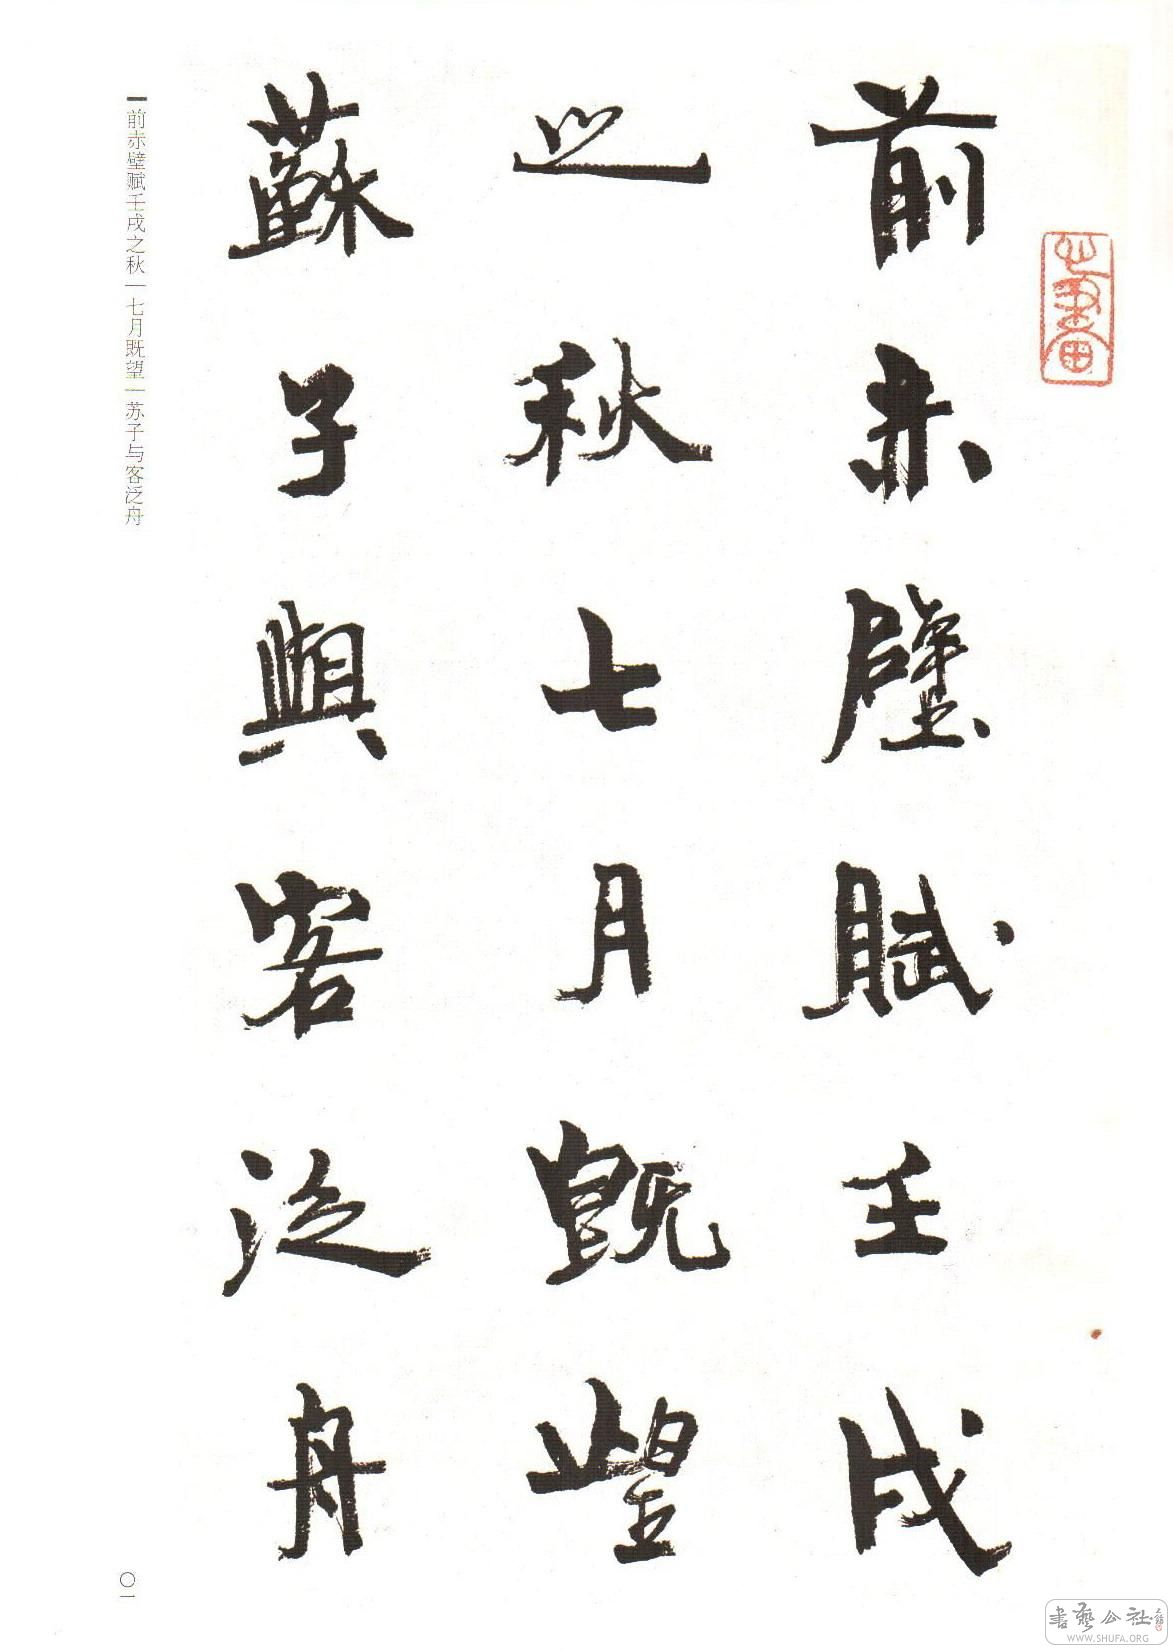 前赤壁賦壬戌
之秋七月既望
蘇子與客泛舟
前赤壁赋壬戌之秋｜七月既望｜苏子与客泛舟
〇一
書藝公社
WWW.SHUFA.ORG